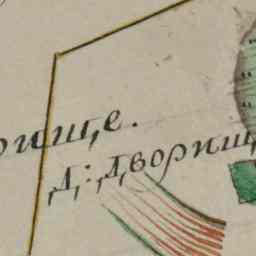 рище.
Д: Дворищ